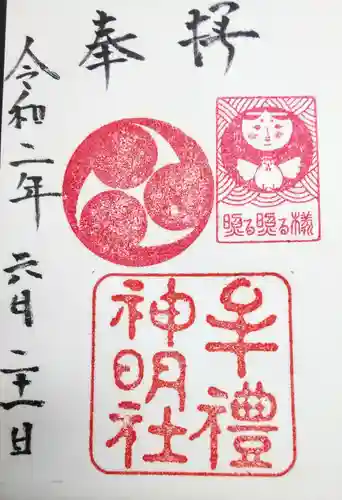 奉拝
牟禮
神明社
照る照る様
令和二年六月二十一日